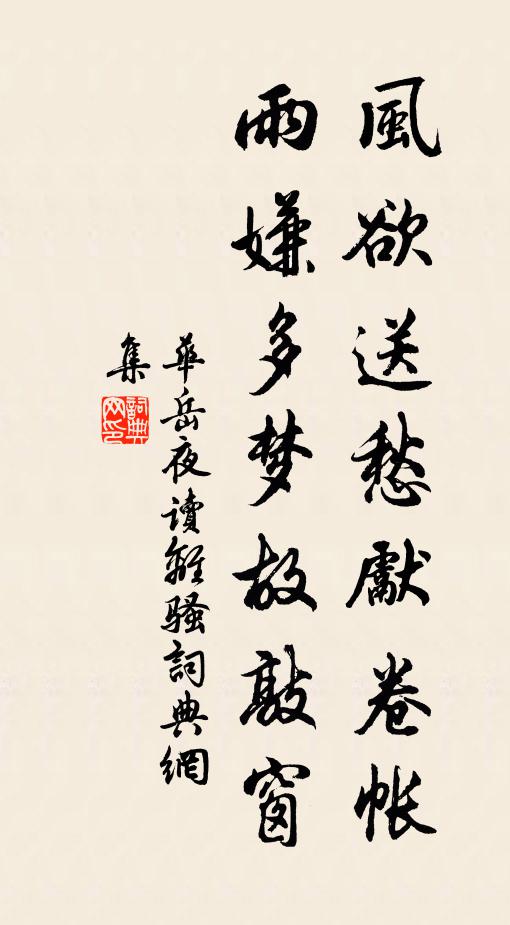 風欲送愁獻卷帳
雨嫌多梦故敲窗
華岳夜讀離騷詞典網
集
詞典网印